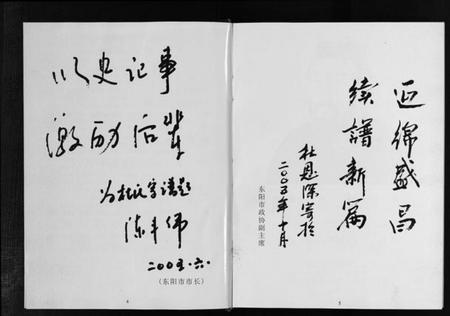 以史记事
激励后辈
为杜氏宗谱题
陈丰伟
二00五.六.
(东阳市市长)
4
延绵盛昌
续谱新篇
杜恩深寄於
二〇〇五年十月
东阳市政协副主席
5